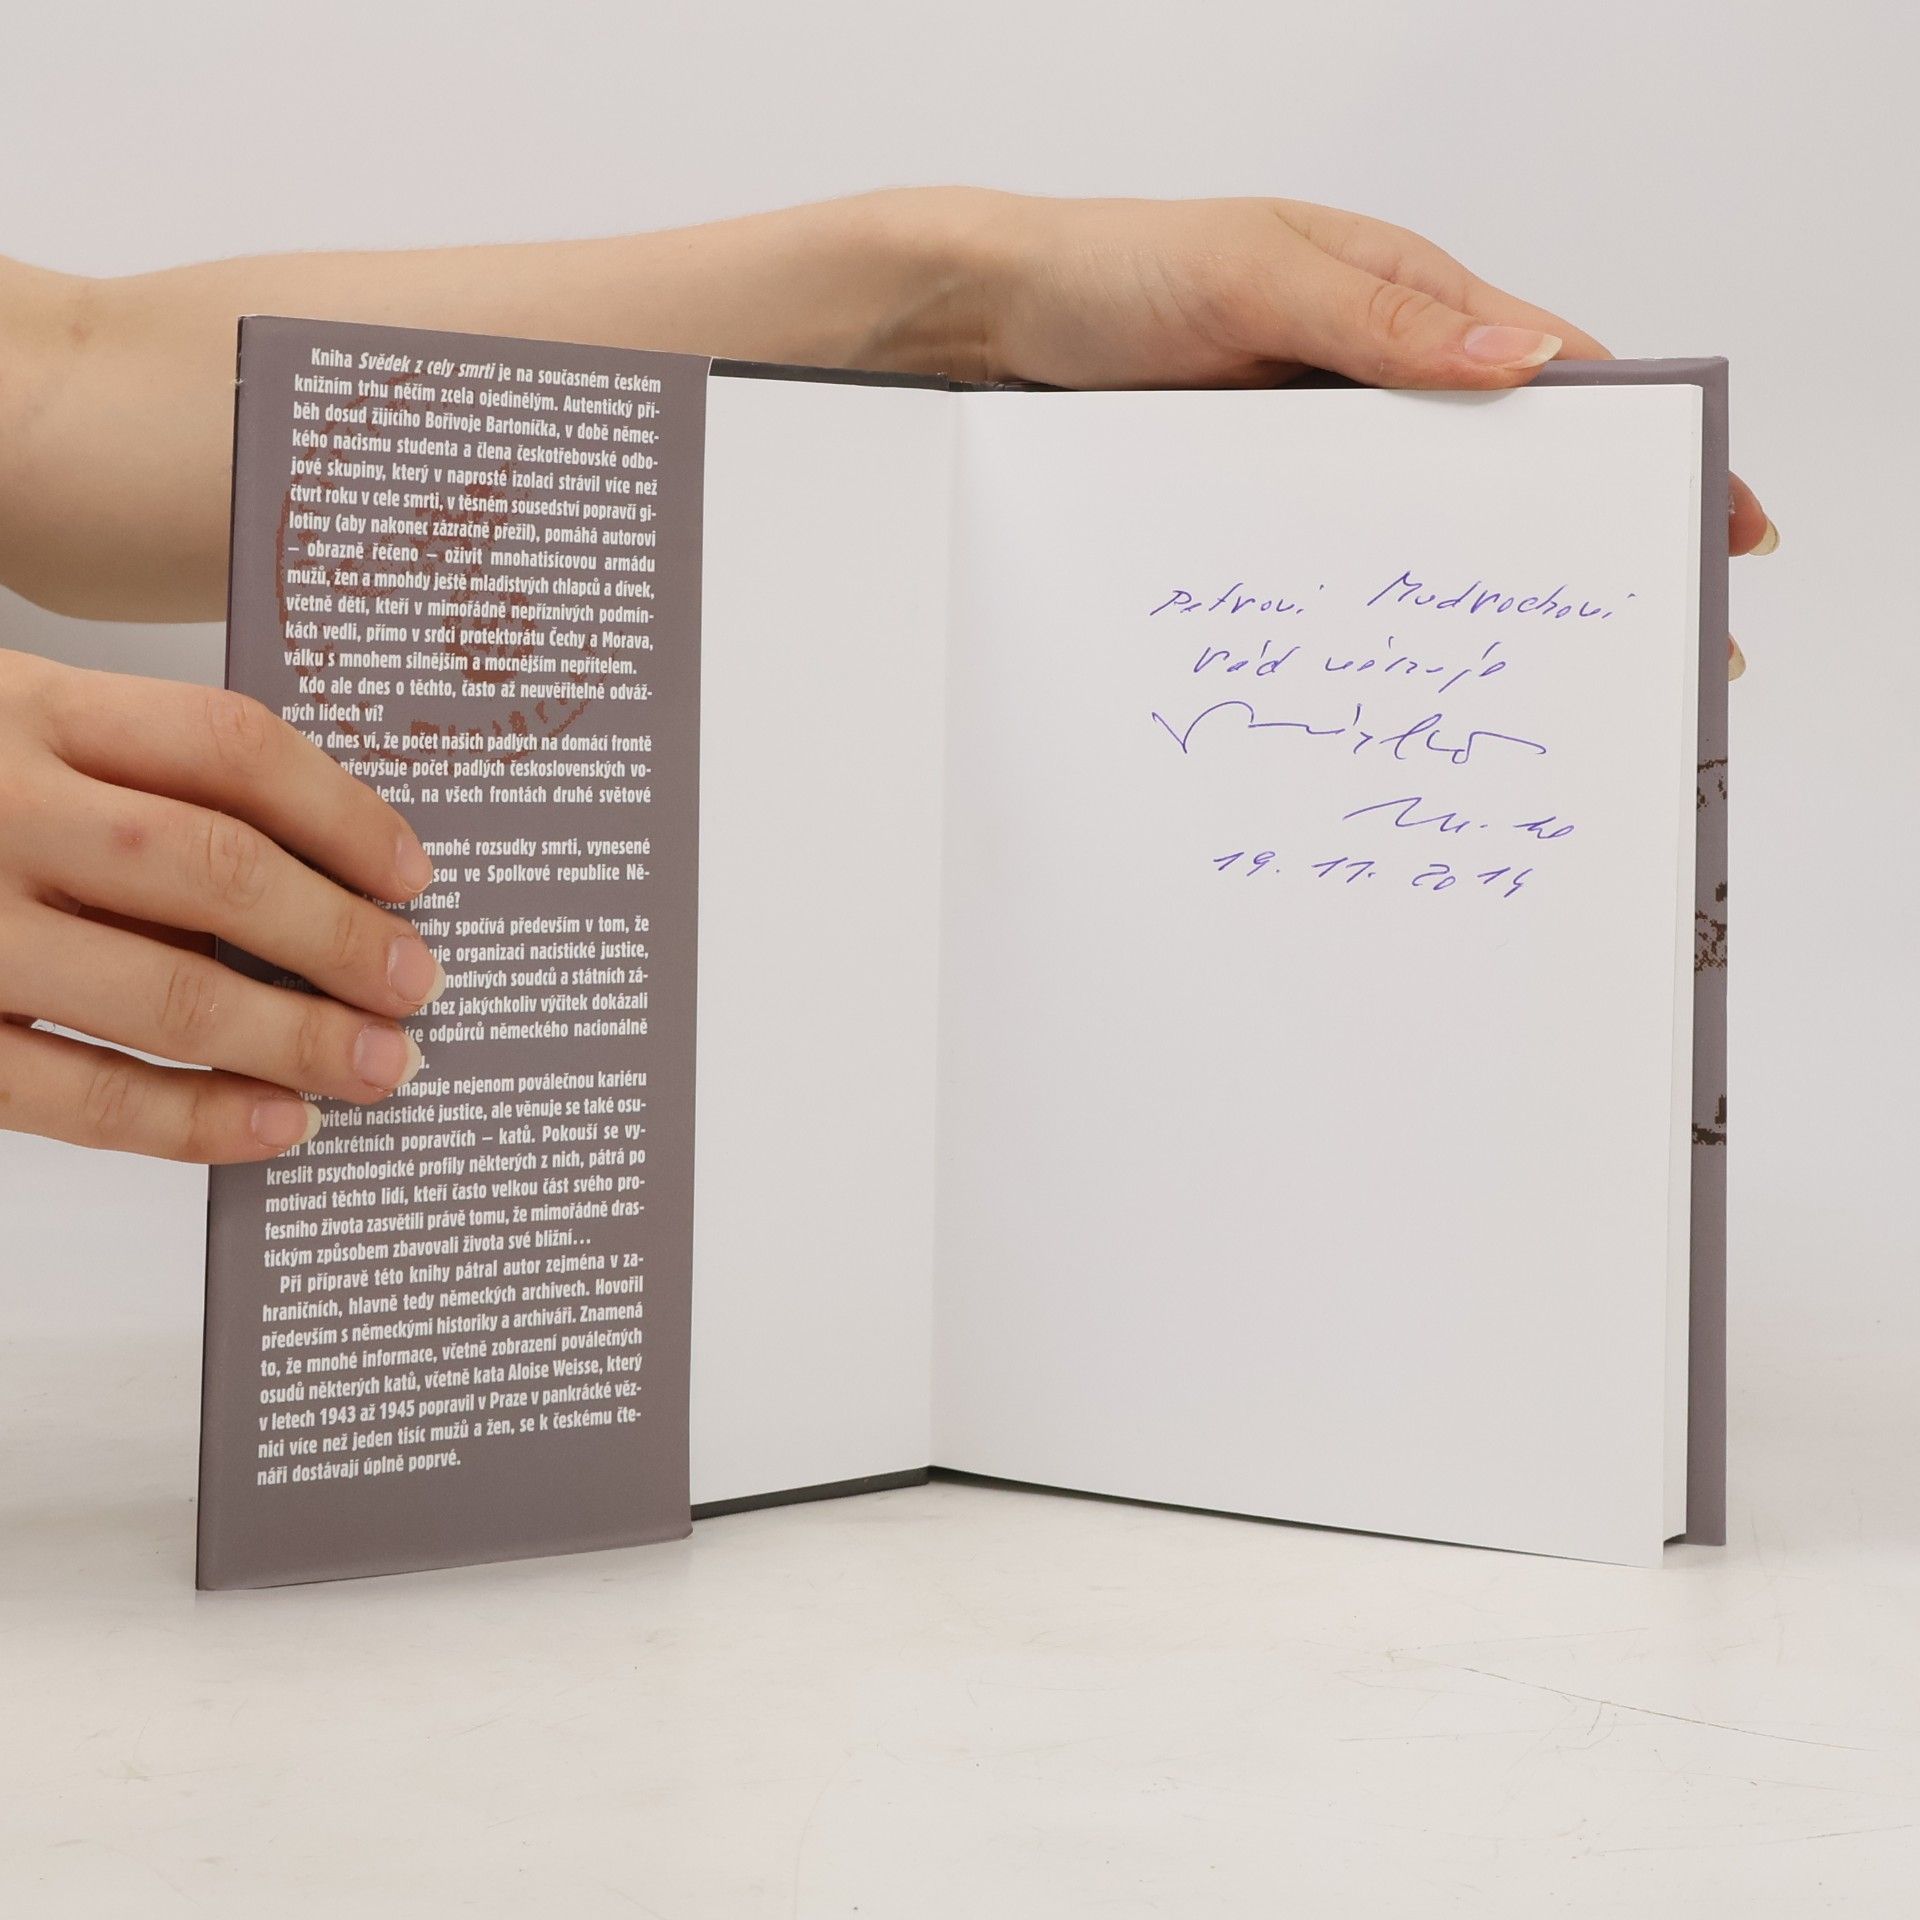 Kniha Svědek z cely smrti je na současném českém
knižním trhu něčím zcela ojedinělým. Autentický pří-
běh dosud žijícího Bořivoje Bartoníčka, v době němec-
kého nacismu studenta a člena českotřebovské odbo-
jové skupiny, který v naprosté izolaci strávil více než
čtvrt roku v cele smrti, v těsném sousedství popravčí gi-
lotiny (aby nakonec zázračně přežil), pomáhá autorovi
– obrazně řečeno – oživit mnohatisícovou armádu
mužů, žen a mnohdy ještě mladistvých chlapců a dívek,
včetně dětí, kteří v mimořádně nepříznivých podmín-
kách vedli, přímo v srdci protektorátu Čechy a Morava,
válku s mnohem silnějším a mocnějším nepřítelem.
Kdo ale dnes o těchto, často až neuvěřitelně odváž-
ných lidech ví?
dnes ví, že počet našich padlých na domácí frontě
převyšuje počet padlých československých vo-
letců, na všech frontách druhé světové
mnohé rozsudky smrti, vynesené
jsou ve Spolkové republice Ně-
platné?
knihy spočívá především v tom, že
organizaci nacistické justice,
soudců a státních zá-
bez jakýchkoliv výčitek dokázali
odpůrců německého nacionálně
mapuje nejenom poválečnou kariéru
nacistické justice, ale věnuje se také osu-
konkrétních popravčích – katů. Pokouší se vy-
kreslit psychologické profily některých z nich, pátrá po
motivaci těchto lidí, kteří často velkou část svého pro-
fesního života zasvětili právě tomu, že mimořádně dras-
tickým způsobem zbavovali života své bližní...
Při přípravě této knihy pátral autor zejména v za-
hraničních, hlavně tedy německých archivech. Hovořil
především s německými historiky a archiváři. Znamená
to, že mnohé informace, včetně zobrazení poválečných
osudů některých katů, včetně kata Aloise Weisse, který
v letech 1943 až 1945 popravil v Praze v pankrácké věz-
nici více než jeden tisíc mužů a žen, se k českému čte-
náři dostávají úplně poprvé.
Petrovi Mudrochovi
rád věnuje
19. 11. 2014